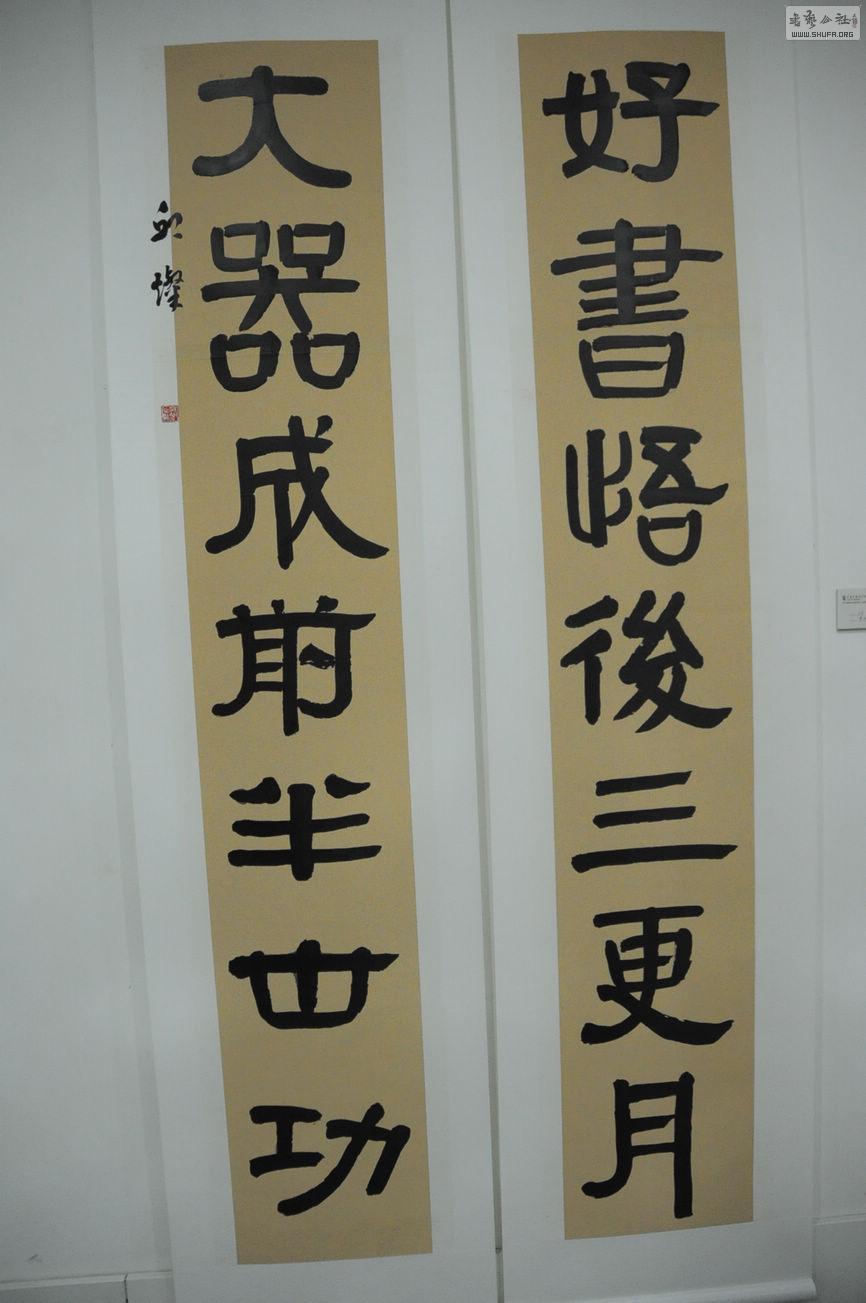 好書悟後三更月
大器成前半世功
邱燦
書藝公社
WWW.SHUFA.ORG